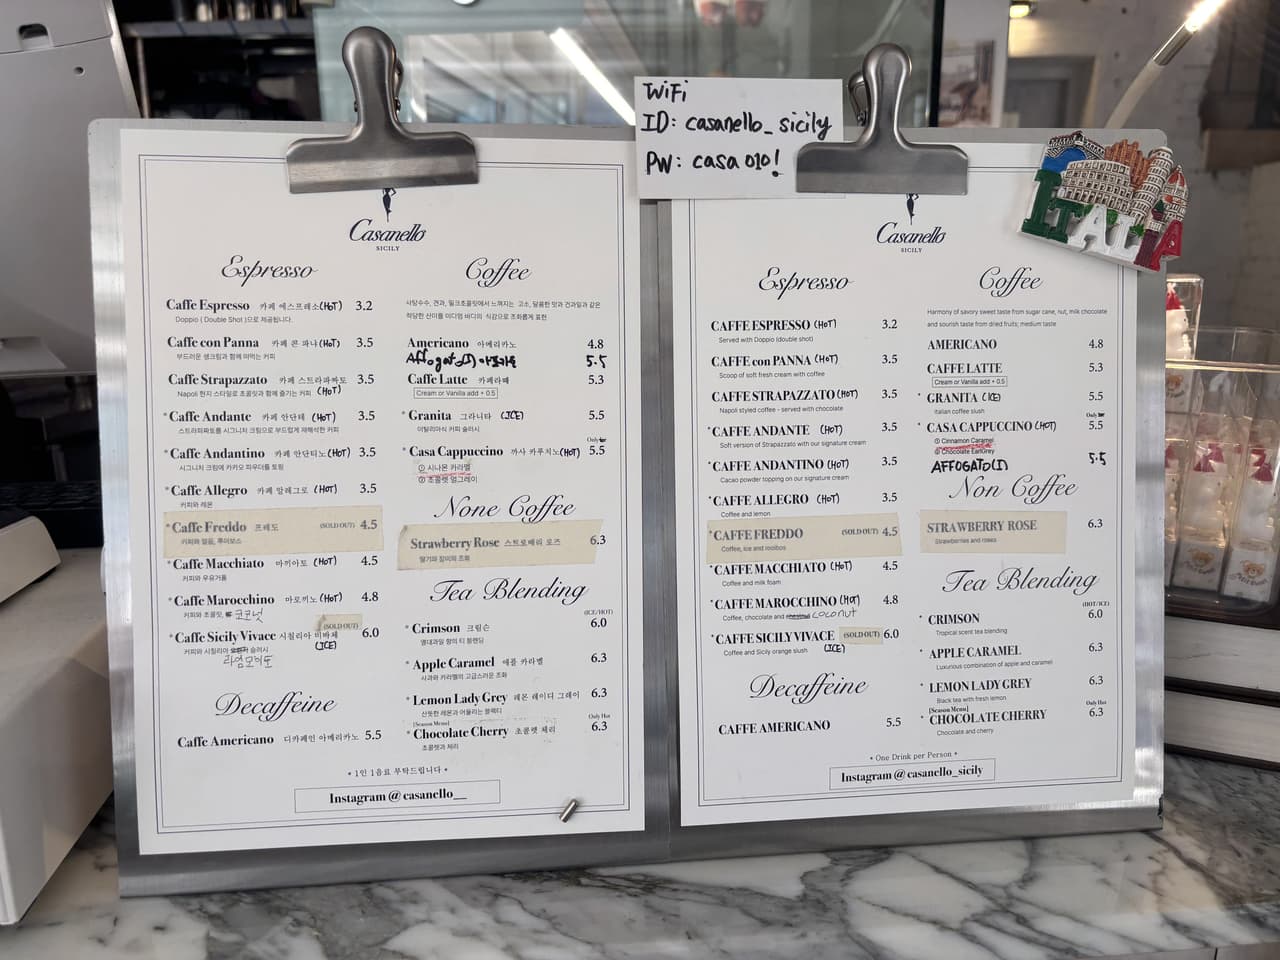 WiFi
ID: casanello_sicily
PW: casa010!
Casanello
SICILY
Espresso
Caffe Espresso 카페 에스프레소(HOT) 3.2
Doppio ( Double Shot )으로 제공됩니다.
Caffe con Panna 카페 콘 파나(HOT) 3.5
부드러운 생크림과 함께 떠먹는 커피
Caffe Strapazzato 카페 스트라파짜토 3.5
Napoli 현지 스타일로 초콜릿과 함께 즐기는 커피 (HOT)
*Caffe Andante 카페 안단테 (HOT) 3.5
스트라파짜토를 시그니처 크림으로 부드럽게 재해석한 커피
*Caffe Andantino 카페 안단티노(HOT) 3.5
시그니처 크림에 카카오 파우더를 토핑
*Caffe Allegro 카페 알레그로 (HOT) 3.5
커피와 레몬
*Caffe Freddo 프레도 (SOLD OUT) 4.5
커피와 얼음, 루이보스
*Caffe Macchiato 마끼아토 (HOT) 4.5
커피와 우유거품
*Caffe Marocchino 마로끼노(HOT) 4.8
커피와 초콜릿, 코코넛
(SOLD OUT)
*Caffe Sicily Vivace 시칠리아 비바체 6.0
커피와 시칠리아 슬러시 (ICE)
라임모히또
Decaffeine
Caffe Americano 디카페인 아메리카노 5.5
Coffee
사탕수수, 견과, 밀크초콜릿에서 느껴지는 고소, 달콤한 맛과 건과일과 같은
적당한 산미를 미디엄 바디의 식감으로 조화롭게 표현
Americano 아메리카노 4.8
Affogato(I) 아포가토 5.5
Caffe Latte 카페라떼 5.3
Cream or Vanilla add + 0.5
*Granita 그라니타 (ICE) 5.5
이탈리아식 커피 슬러시
Only
*Casa Cappuccino 까사 카푸치노(HOT) 5.5
① 시나몬 카라멜
② 초콜렛 얼그레이
None Coffee
Strawberry Rose 스트로베리 로즈 6.3
딸기와 장미의 조화
Tea Blending
(ICE/HOT)
*Crimson 크림슨 6.0
열대과일 향의 티 블렌딩
*Apple Caramel 애플 카라멜 6.3
사과와 카라멜의 고급스러운 조화
*Lemon Lady Grey 레몬 레이디 그레이 6.3
산뜻한 레몬과 어울리는 블랙티
[Season Menu] Only Hot
*Chocolate Cherry 초콜렛 체리 6.3
초콜렛과 체리
* 1인 1음료 부탁드립니다 *
Instagram @ casanello__
Casanello
SICILY
Espresso
CAFFE ESPRESSO (HOT) 3.2
Served with Doppio (double shot)
CAFFE con PANNA (HOT) 3.5
Scoop of soft fresh cream with coffee
CAFFE STRAPAZZATO(HOT) 3.5
Napoli styled coffee - served with chocolate
*CAFFE ANDANTE (HOT) 3.5
Soft version of Strapazzato with our signature cream
*CAFFE ANDANTINO (HOT) 3.5
Cacao powder topping on our signature cream
*CAFFE ALLEGRO (HOT) 3.5
Coffee and lemon
*CAFFE FREDDO (SOLD OUT) 4.5
Coffee, ice and rooibos
*CAFFE MACCHIATO (HOT) 4.5
Coffee and milk foam
*CAFFE MAROCCHINO (HOT) 4.8
Coffee, chocolate and coconut
*CAFFE SICILY VIVACE (SOLD OUT) 6.0
Coffee and Sicily orange slush (ICE)
Decaffeine
CAFFE AMERICANO 5.5
Coffee
Harmony of savory sweet taste from sugar cane, nut, milk chocolate
and sourish taste from dried fruits; medium taste
AMERICANO 4.8
CAFFE LATTE 5.3
Cream or Vanilla add + 0.5
*GRANITA (ICE) 5.5
Italian coffee slush
Only
*CASA CAPPUCCINO (HOT) 5.5
① Cinnamon Caramel
② Chocolate EarlGrey
AFFOGATO(I) 5.5
Non Coffee
STRAWBERRY ROSE 6.3
Strawberries and roses
Tea Blending
(HOT/ICE)
*CRIMSON 6.0
Tropical scent tea blending
*APPLE CARAMEL 6.3
Luxurious combination of apple and caramel
*LEMON LADY GREY 6.3
Black tea with fresh lemon
[Season Menu] Only Hot
*CHOCOLATE CHERRY 6.3
Chocolate and cherry
* One Drink per Person *
Instagram @ casanello_sicily
ITALIA